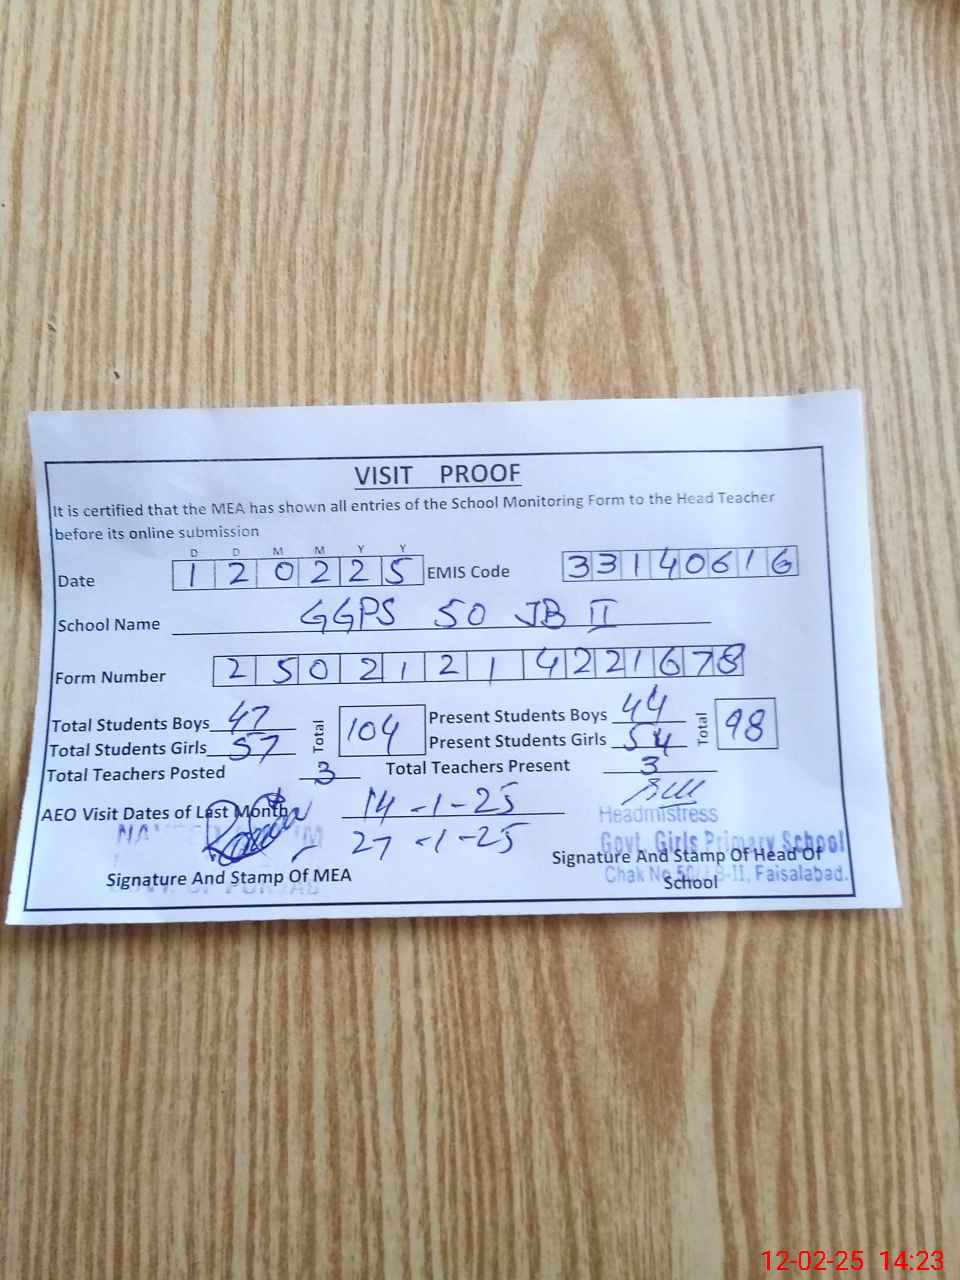 VISIT PROOF
It is certified that the MEA has shown all entries of the School Monitoring Form to the Head Teacher
before its online submission
D D M M Y Y
Date 1 2 0 2 2 5 EMIS Code 3 3 1 4 0 6 1 6
School Name GGPS 50 JB II
Form Number 2 5 0 2 1 2 1 4 2 2 1 6 7 8
Total Students Boys 47 Total 104 Present Students Boys 44 Total 98
Total Students Girls 57 Present Students Girls 54
Total Teachers Posted 3 Total Teachers Present 3
AEO Visit Dates of Last Month 14-1-25
27-1-25
Headmistress
Govt. Girls Primary School
Chak No. 50/JB-II, Faisalabad.
Signature And Stamp Of MEA
Signature And Stamp Of Head Of
School
12-02-25 14:23